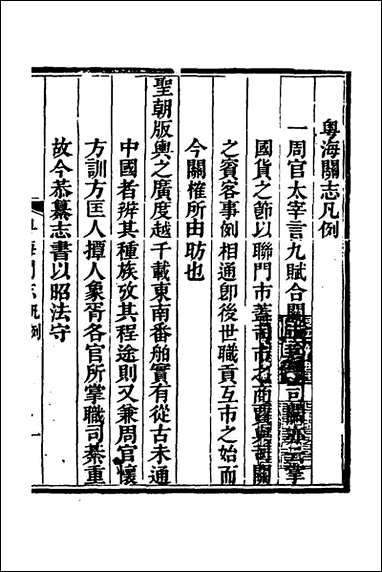 粵海關志凡例
一周官太宰言九賦合關市 司關 掌
國貨之節以聯門市蓋司市之商賈與司關
之賓客事例相通卽後世職貢互市之始而
今關榷所由昉也
聖朝版輿之廣度越千載東南番舶實有從古未通
中國者辨其種族攷其程途則又兼周官懷
方訓方匡人撢人象胥各官所掌職司綦重
故今恭纂志書以昭法守
粵海關志凡例
一